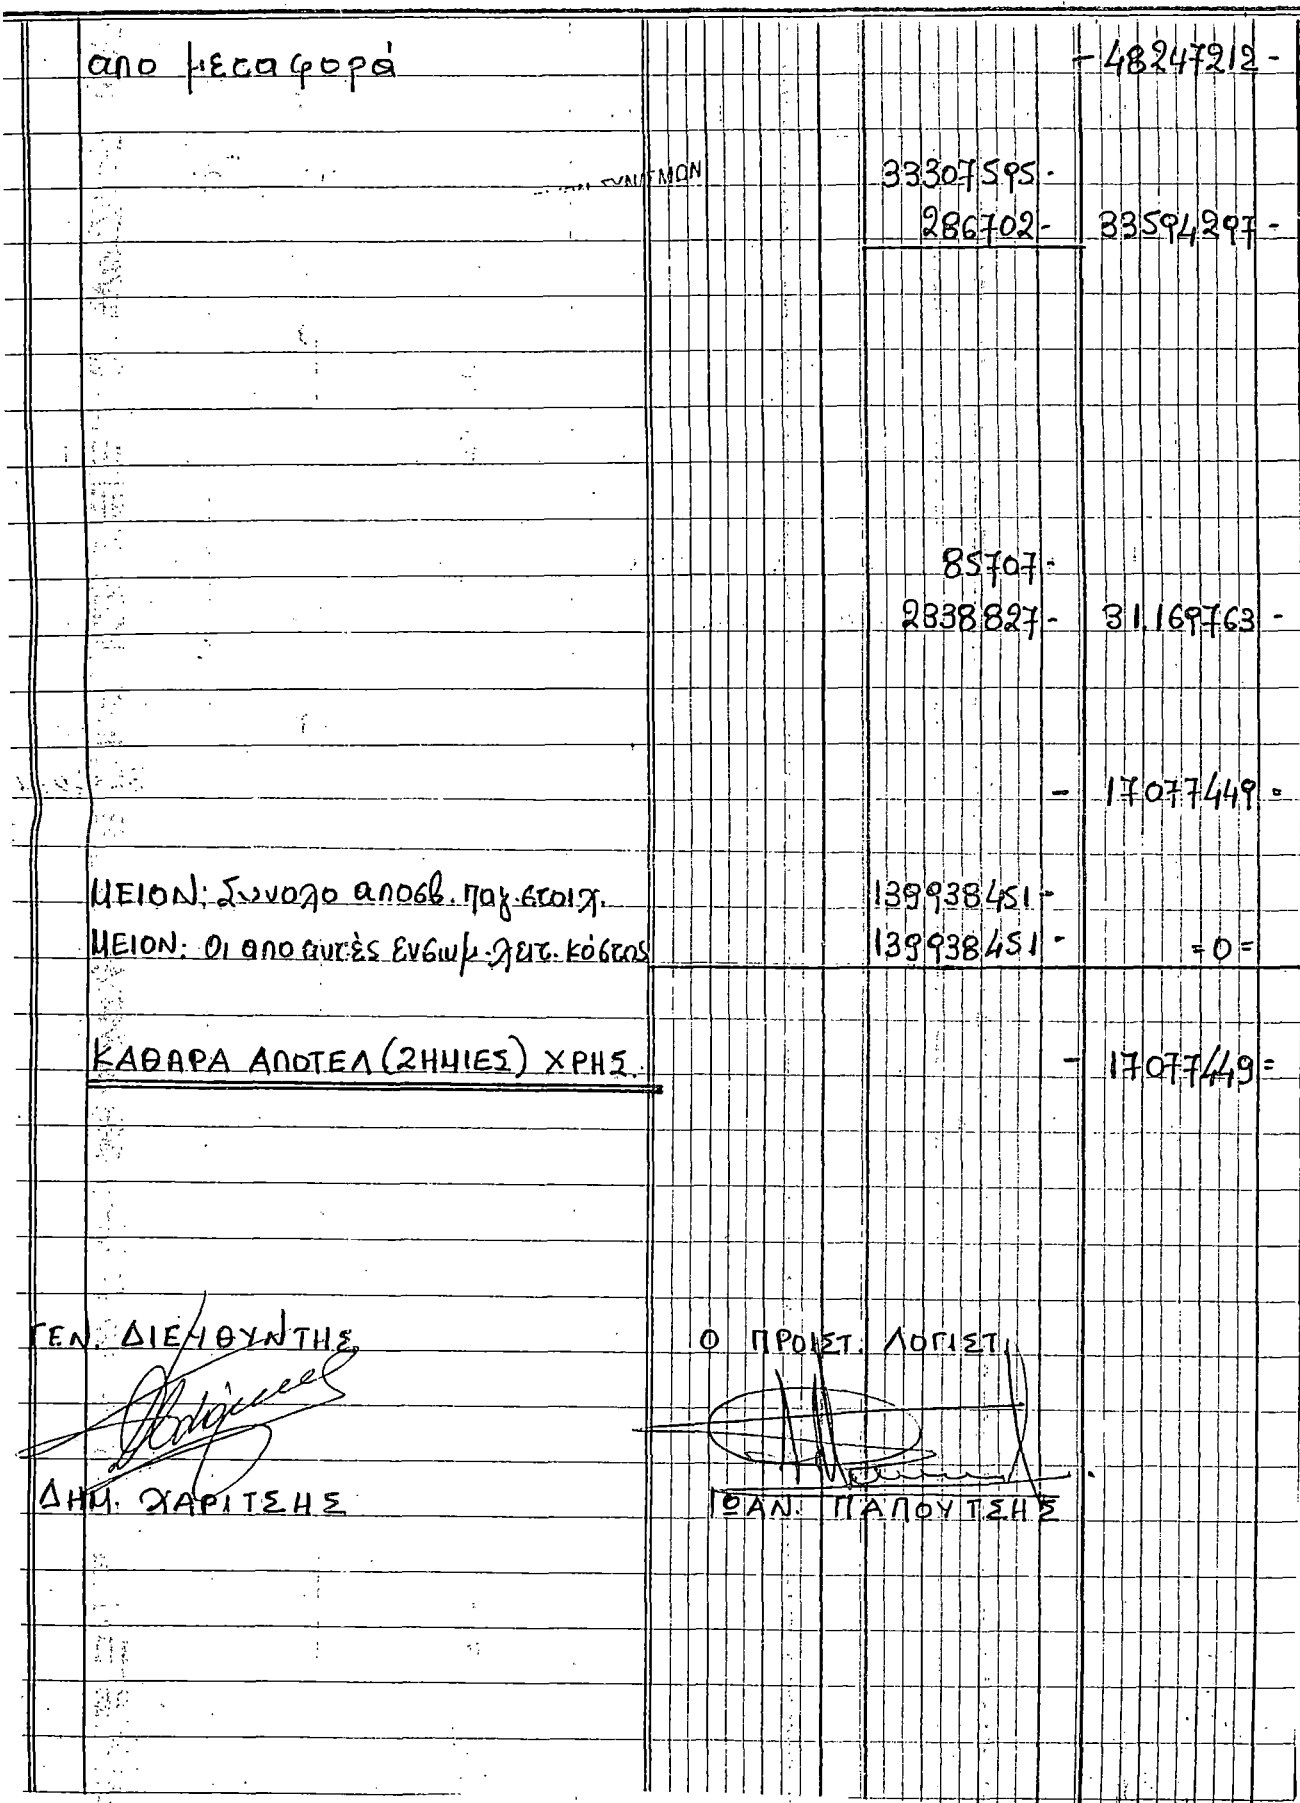 απο μεταφορά - 48247212-
33307595-
286702- 33594297-
85707-
2338827- 31.169763-
- 17077449=
ΜΕΙΟΝ: Συνολο αποσβ. παγ. στοιχ. 139938451-
ΜΕΙΟΝ: Οι απο αυτές ενσωμ. λειτ. κόστος 139938451- =0=
ΚΑΘΑΡΑ ΑΠΟΤΕΛ (ΖΗΜΙΕΣ) ΧΡΗΣ. - 17077449=
ΓΕΝ. ΔΙΕΥΘΥΝΤΗΣ Ο ΠΡΟΙΣΤ. ΛΟΓΙΣΤ.
ΔΗΜ. ΧΑΡΙΤΣΗΣ ΙΩΑΝ. ΠΑΠΟΥΤΣΗΣ